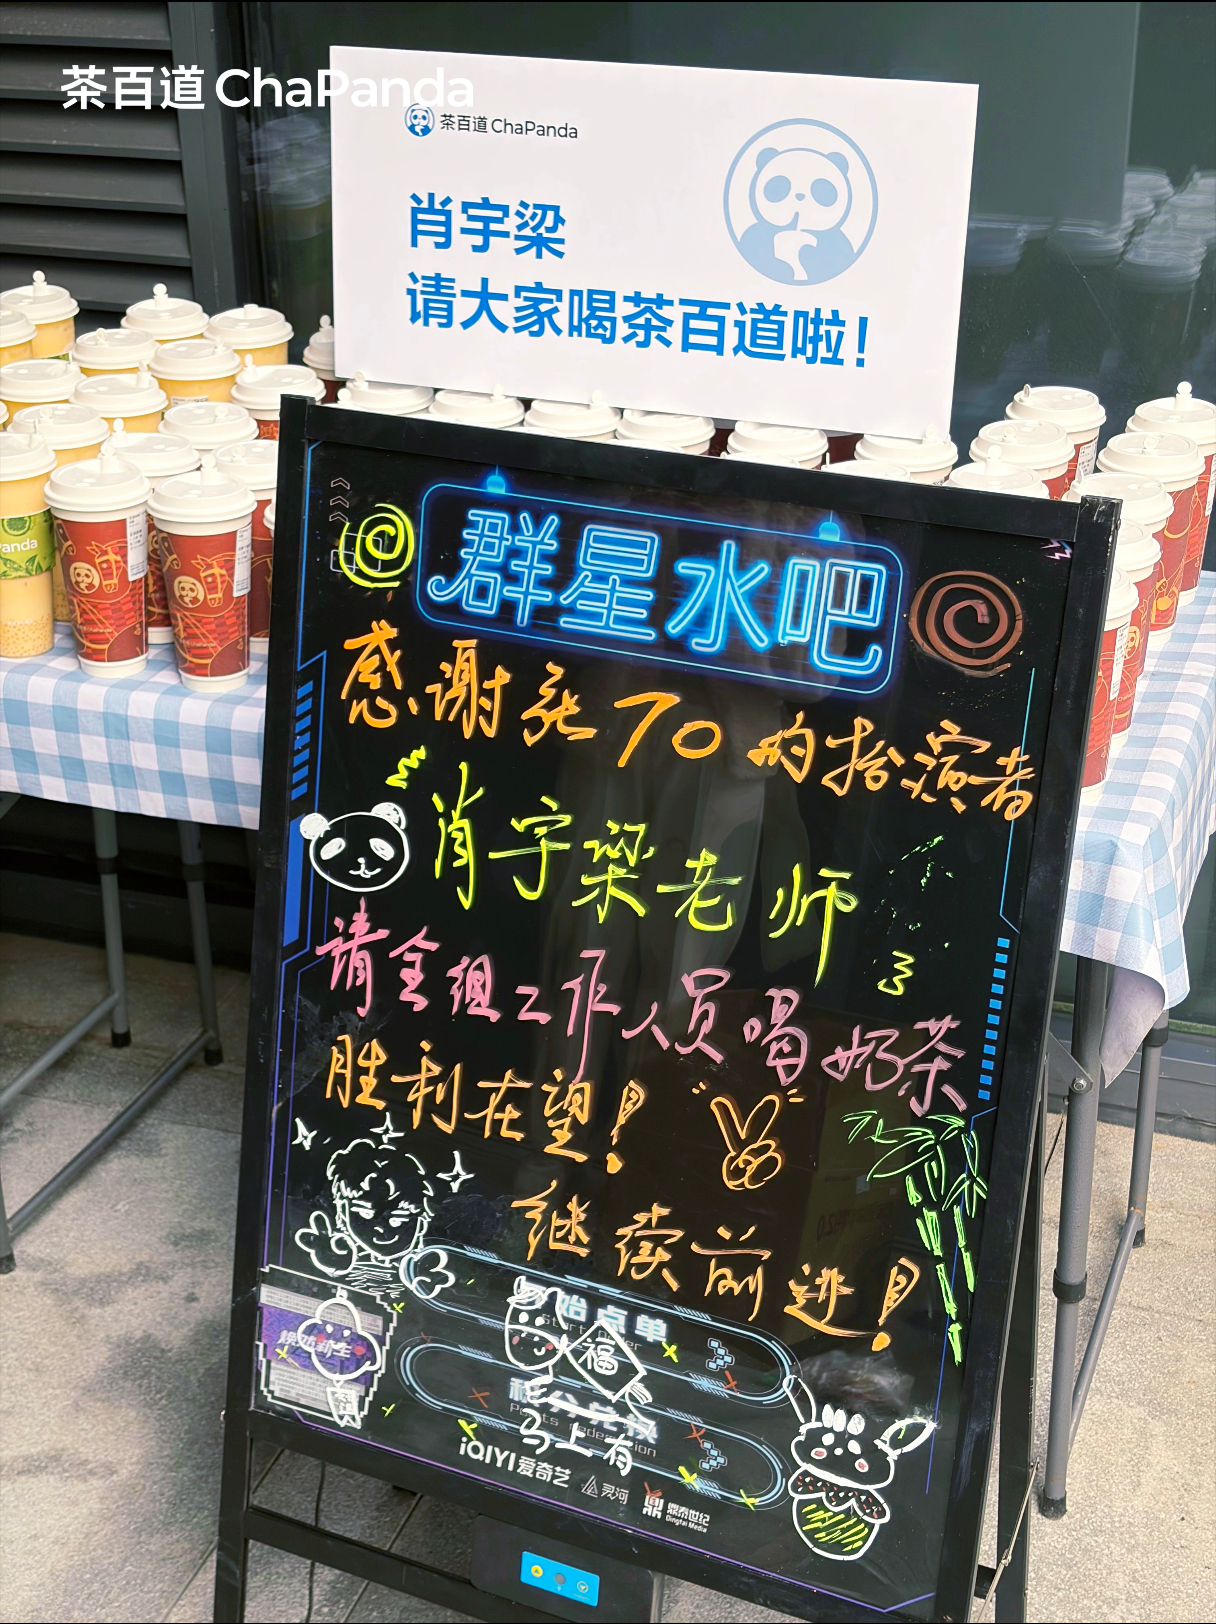 茶百道 ChaPanda
茶百道 ChaPanda
肖宇梁
请大家喝茶百道啦！
anda
群星水吧
感谢张70的扮演者
肖宇梁老师
请全组工作人员喝奶茶
胜利在望！
继续前进！
始点单
福
积分兑换
马上有
iQIYI 爱奇艺
灵河
鼎泰世纪
Dingtai Media